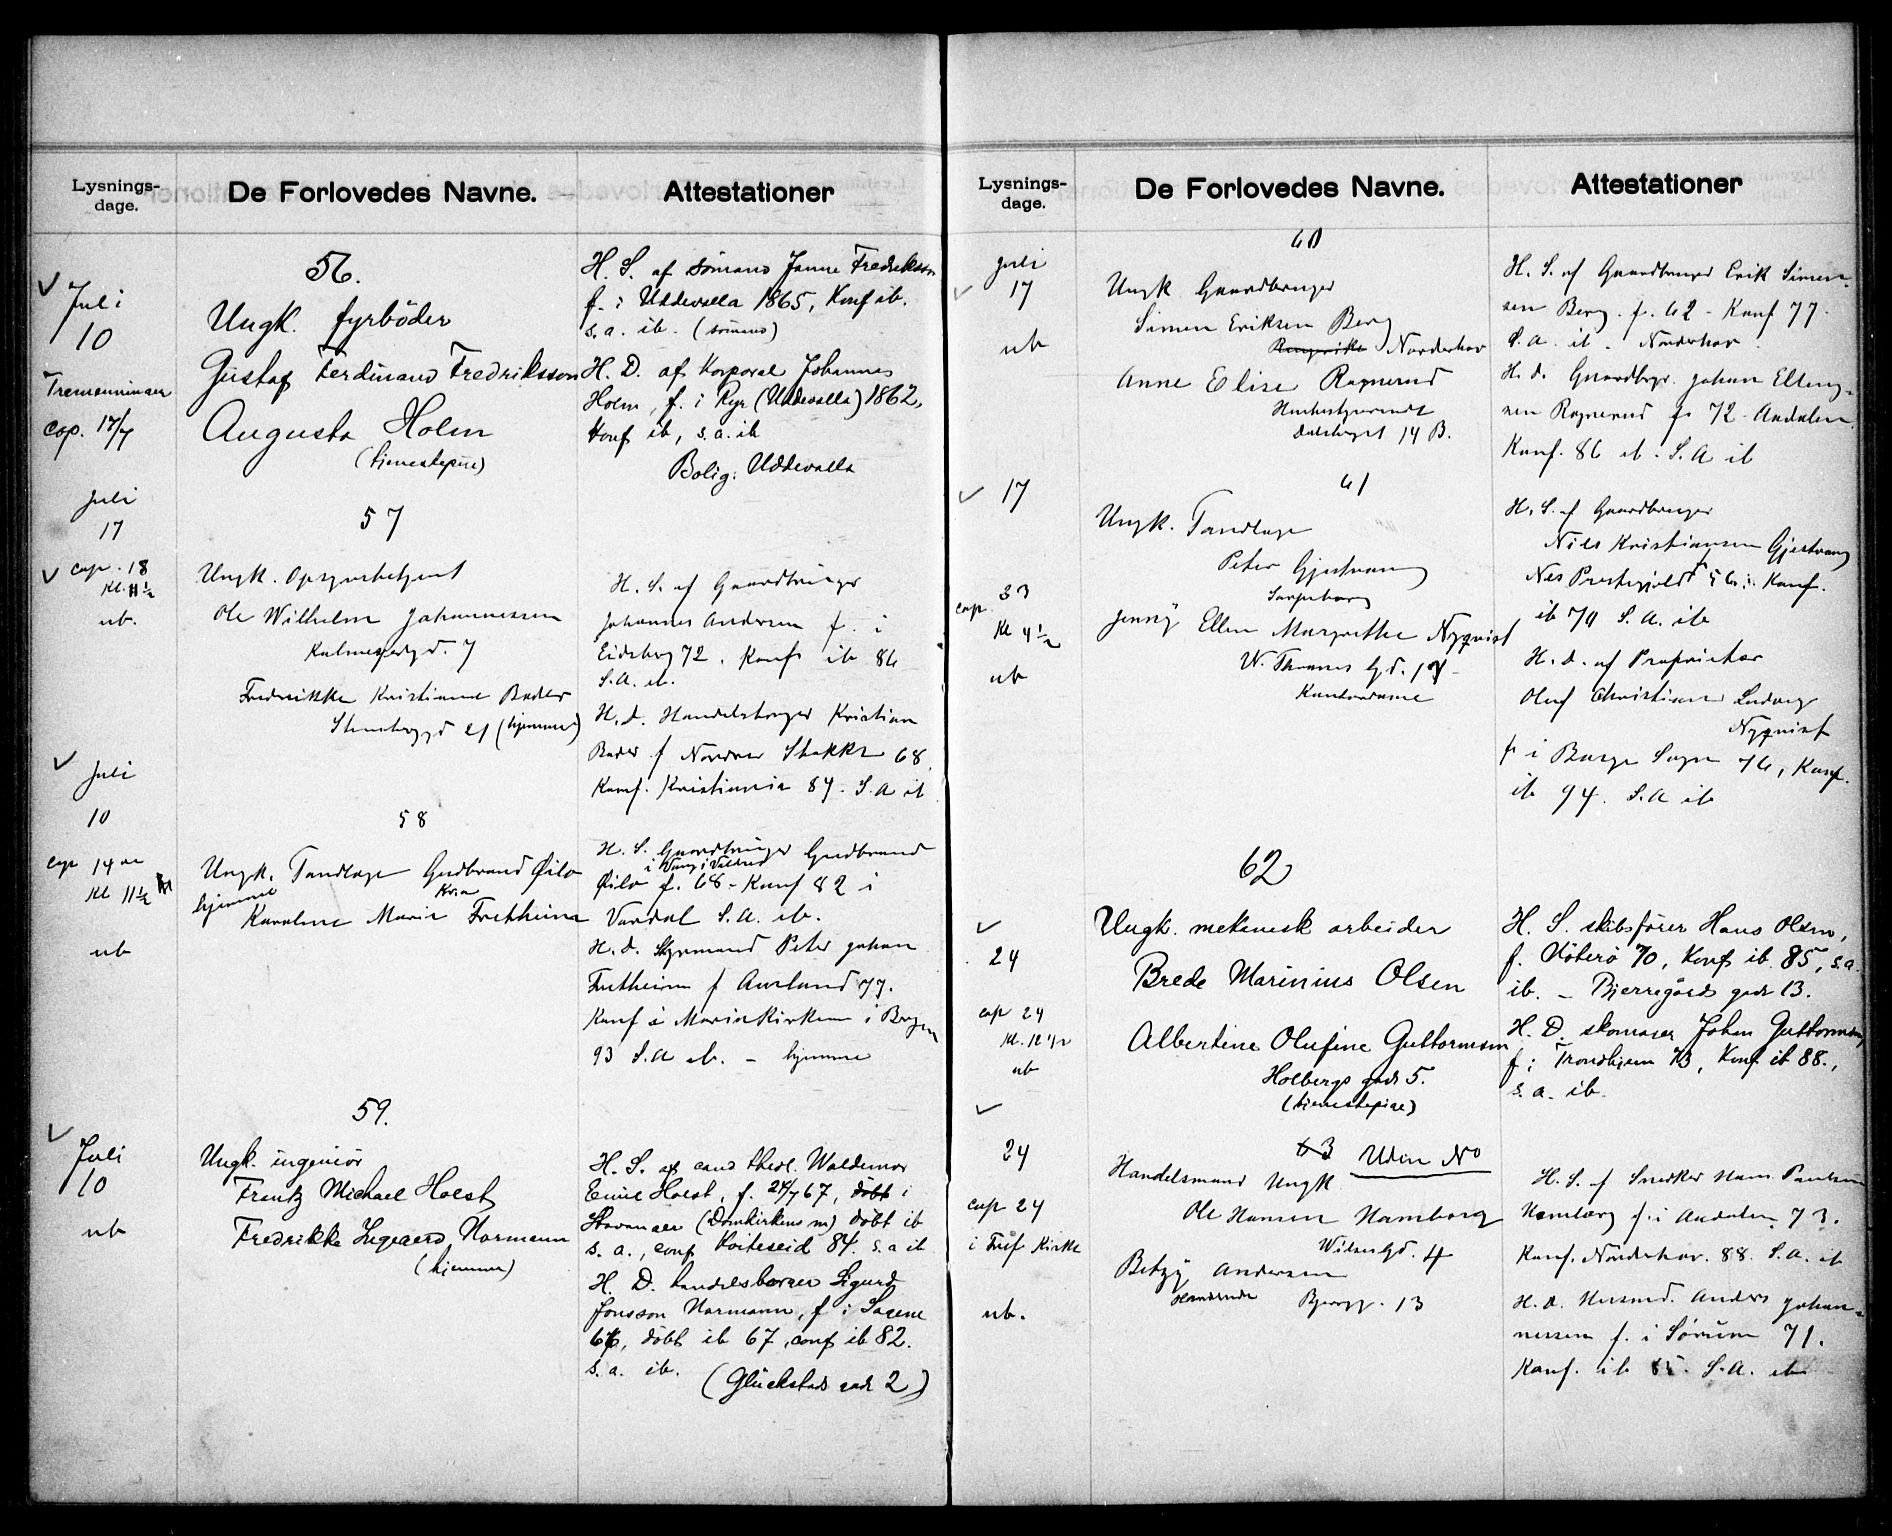 Lysnings-
dage.
De Forlovedes Navne.
Attestationer
✓
Juli
10
Tremenninger
cop. 17/7
56.
Ungk. fyrböder
Gustaf Ferdinand Fredriksson
Augusta Holm
(tjenestepike)
H. S. af sömand Janne Fredriksson
f. i Uddevalla 1865, Konf ib.
s. a. ib. (sömand)
H. D. af Korporal Johannes
Holm, f. i Ryr (Uddevalla) 1862,
Konf ib, s. a. ib
Bolig: Uddevalla
Juli
17
✓ cop. 18
Kl. 11 1/2
ub.
57
Ungk. Opsynsbetjent
Ole Wilhelm Johannessen
gd. 7
Fredrikke Kristiane Bader
Stensberggd 21 (hjemme)
H. S. af Gaardbruger
Johannes Andersen f. i
Eidsberg 72. Konf ib 86
S. A. ib.
H. d. Handelsborger Kristian
Bader f Nordre 68.
Konf. Kristiania 84. S. A ib
✓
Juli
10
cop 14
Kl 11 1/2
ub
58
Ungk. Tandlæge Gudbrand Øilo
hjemme
Kria
Karoline Marie Fretheim
H. S. Gaardbruger Gudbrand
i Wang i Valdres
Øilo f. 68 - Konf 82 i
Vardal S. A. ib.
H. d. Styrmand Peter Johan
Fretheim f Aurland 77.
Konf i Mariakirken i Bergen
93 S. A ib. - hjemme
✓
Juli
10
ub
59.
Ungk. ingeniör
Frentz Michael Holst
Fredrikke Ingeaerd Normann
(hjemme)
H. S. af cand theol. Waldemar
Emil Holst, f. 24/7 67, döbt i
Stavanger (Domkirkens m) döbt ib
s. a., conf Hviteseid 84. s. a ib
H. D. handelsborger Sigurd
Jonsson Normann, f i Sagene
66, döbt ib 67, conf ib 82.
s. a. ib.
(Glückstads gade 2)
Lysnings-
dage.
De Forlovedes Navne.
Attestationer
Juli
✓ 17
ub
60
Ungk Gaardbruger
Simen Eriksen Berg
Ringerike Norderhov
Anne Elise Rognerud
Dalsberget 14 B.
H. S. af Gaardbruger Erik Simen-
sen Berg. f. 62 - Konf 77.
S. A. ib. Norderhov.
H. d. Gaardbgr. Johan Elling-
sen Rognerud f. 72 - Aadalen
Konf. 86 ib. S. A ib
✓ 17
23
cop.
Kl 4 1/2
ub
61
Ungk. Tandlæge
Peter Gjestvang
Sarpsborg
Jenny Ellen Margrethe Nyqvist
W. Thranes Gd. 17
Kontordame
H. S. af Gaardbruger
Nils Kristiansen Gjestvang
Nes Prestegjeld f 56. Konf.
ib 70 S. A. ib
H. d. af Proprietær
Oluf Christian Ludvig
Nyqvist
f. i Borge Sogn 76, Konf.
ib 94. S. A ib
✓
24
cop 24
Kl. 12 1/2
ub
62
Ungk. mekanisk arbeider
Brede Marinius Olsen
Albertine Olufine Guttormsen
Holbergs gade 5.
(tjenestepike)
H. S. skibsförer Hans Olsen,
f. Nöterö 70, Konf ib. 85, s. a.
ib. - Bjerregårds gade 13.
H. D. skomager Johan Guttormsen,
f: Trondhjem 73, Konf ib 88.,
s. a. ib.
✓
24
cop 24
i Trif Kirke
ub.
63 Uden No
Handelsmand Ungk
Ole Hansen Hamborg
Wilses Gd. 4
Betzy Andersen
Handlende Bjergg. 13
H. S. af Snedker Hans Paulsen
Hamborg f. i Aadalen 73.
Konf. Norderhov. 88. S. A. ib
H. d. Husmd. Anders Johan-
nessen f. i Sörum 71.
Konf. ib 85. S. A. ib